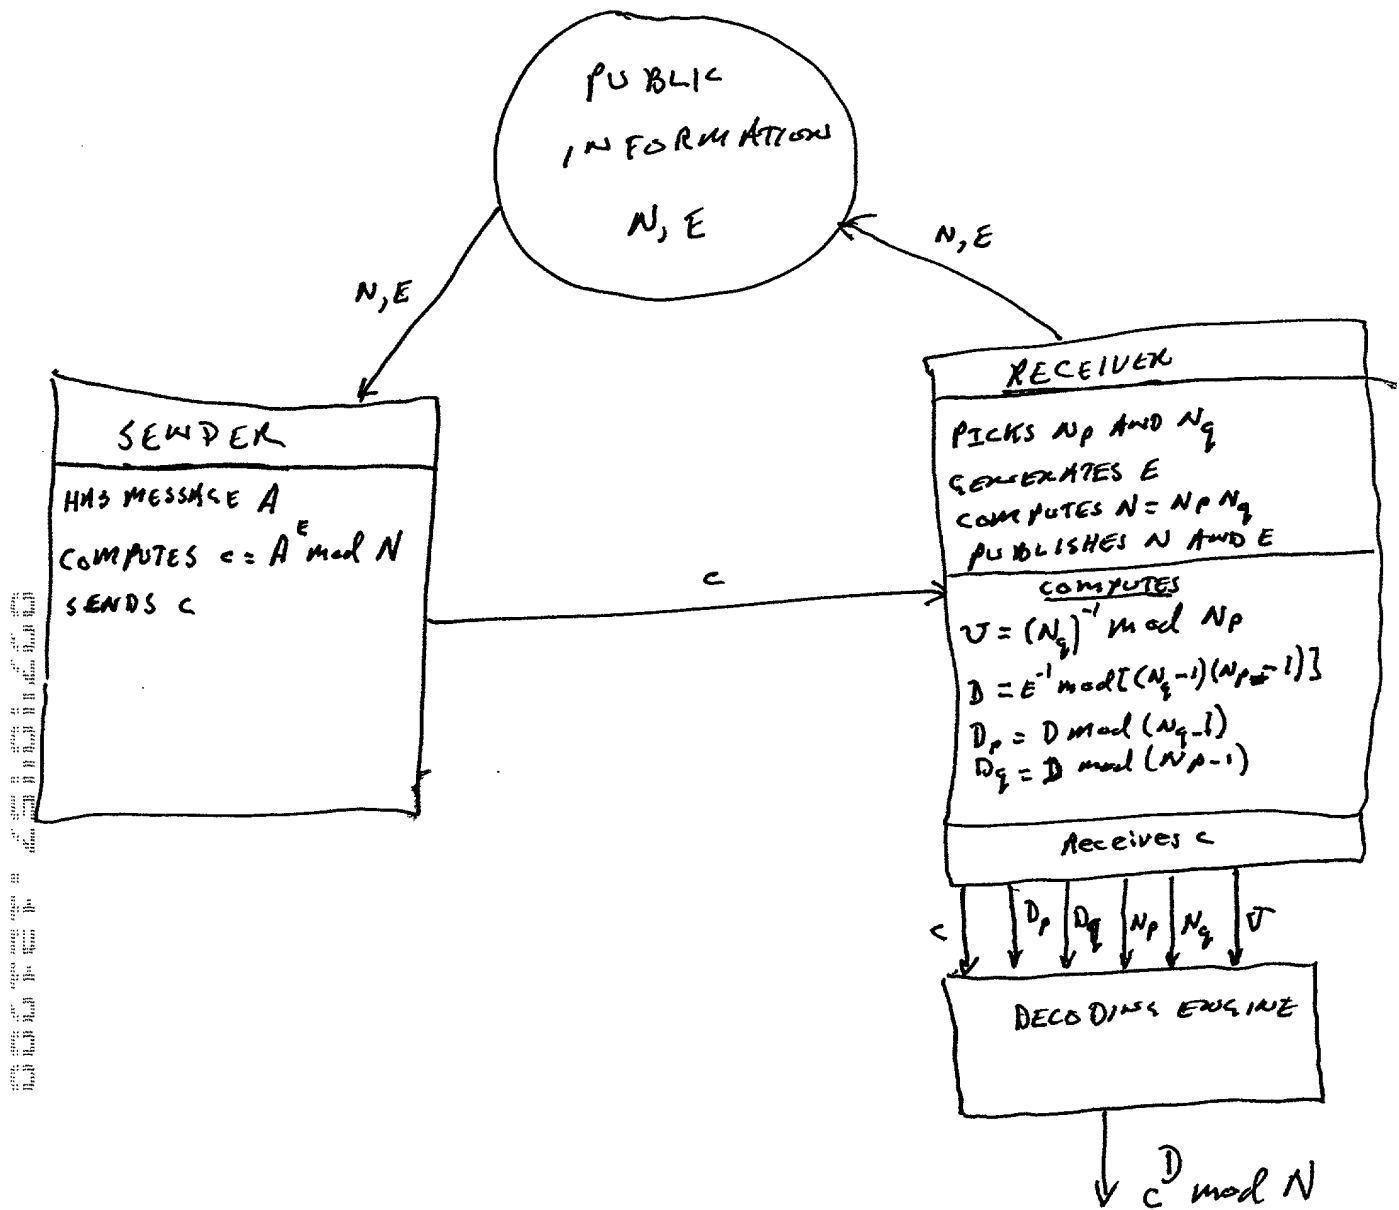 PUBLIC
INFORMATION
N, E
N, E
N, E
SENDER
HAS MESSAGE A
COMPUTES c = A^E mod N
SENDS c
c
RECEIVER
PICKS Np AND Nq
GENERATES E
COMPUTES N = Np Nq
PUBLISHES N AND E
COMPUTES
U = (Nq)^-1 mod Np
D = E^-1 mod[(Nq-1)(Np-1)]
Dp = D mod (Nq-1)
Dq = D mod (Np-1)
Receives c
c Dp Dq Np Nq U
DECODING ENGINE
c^D mod N